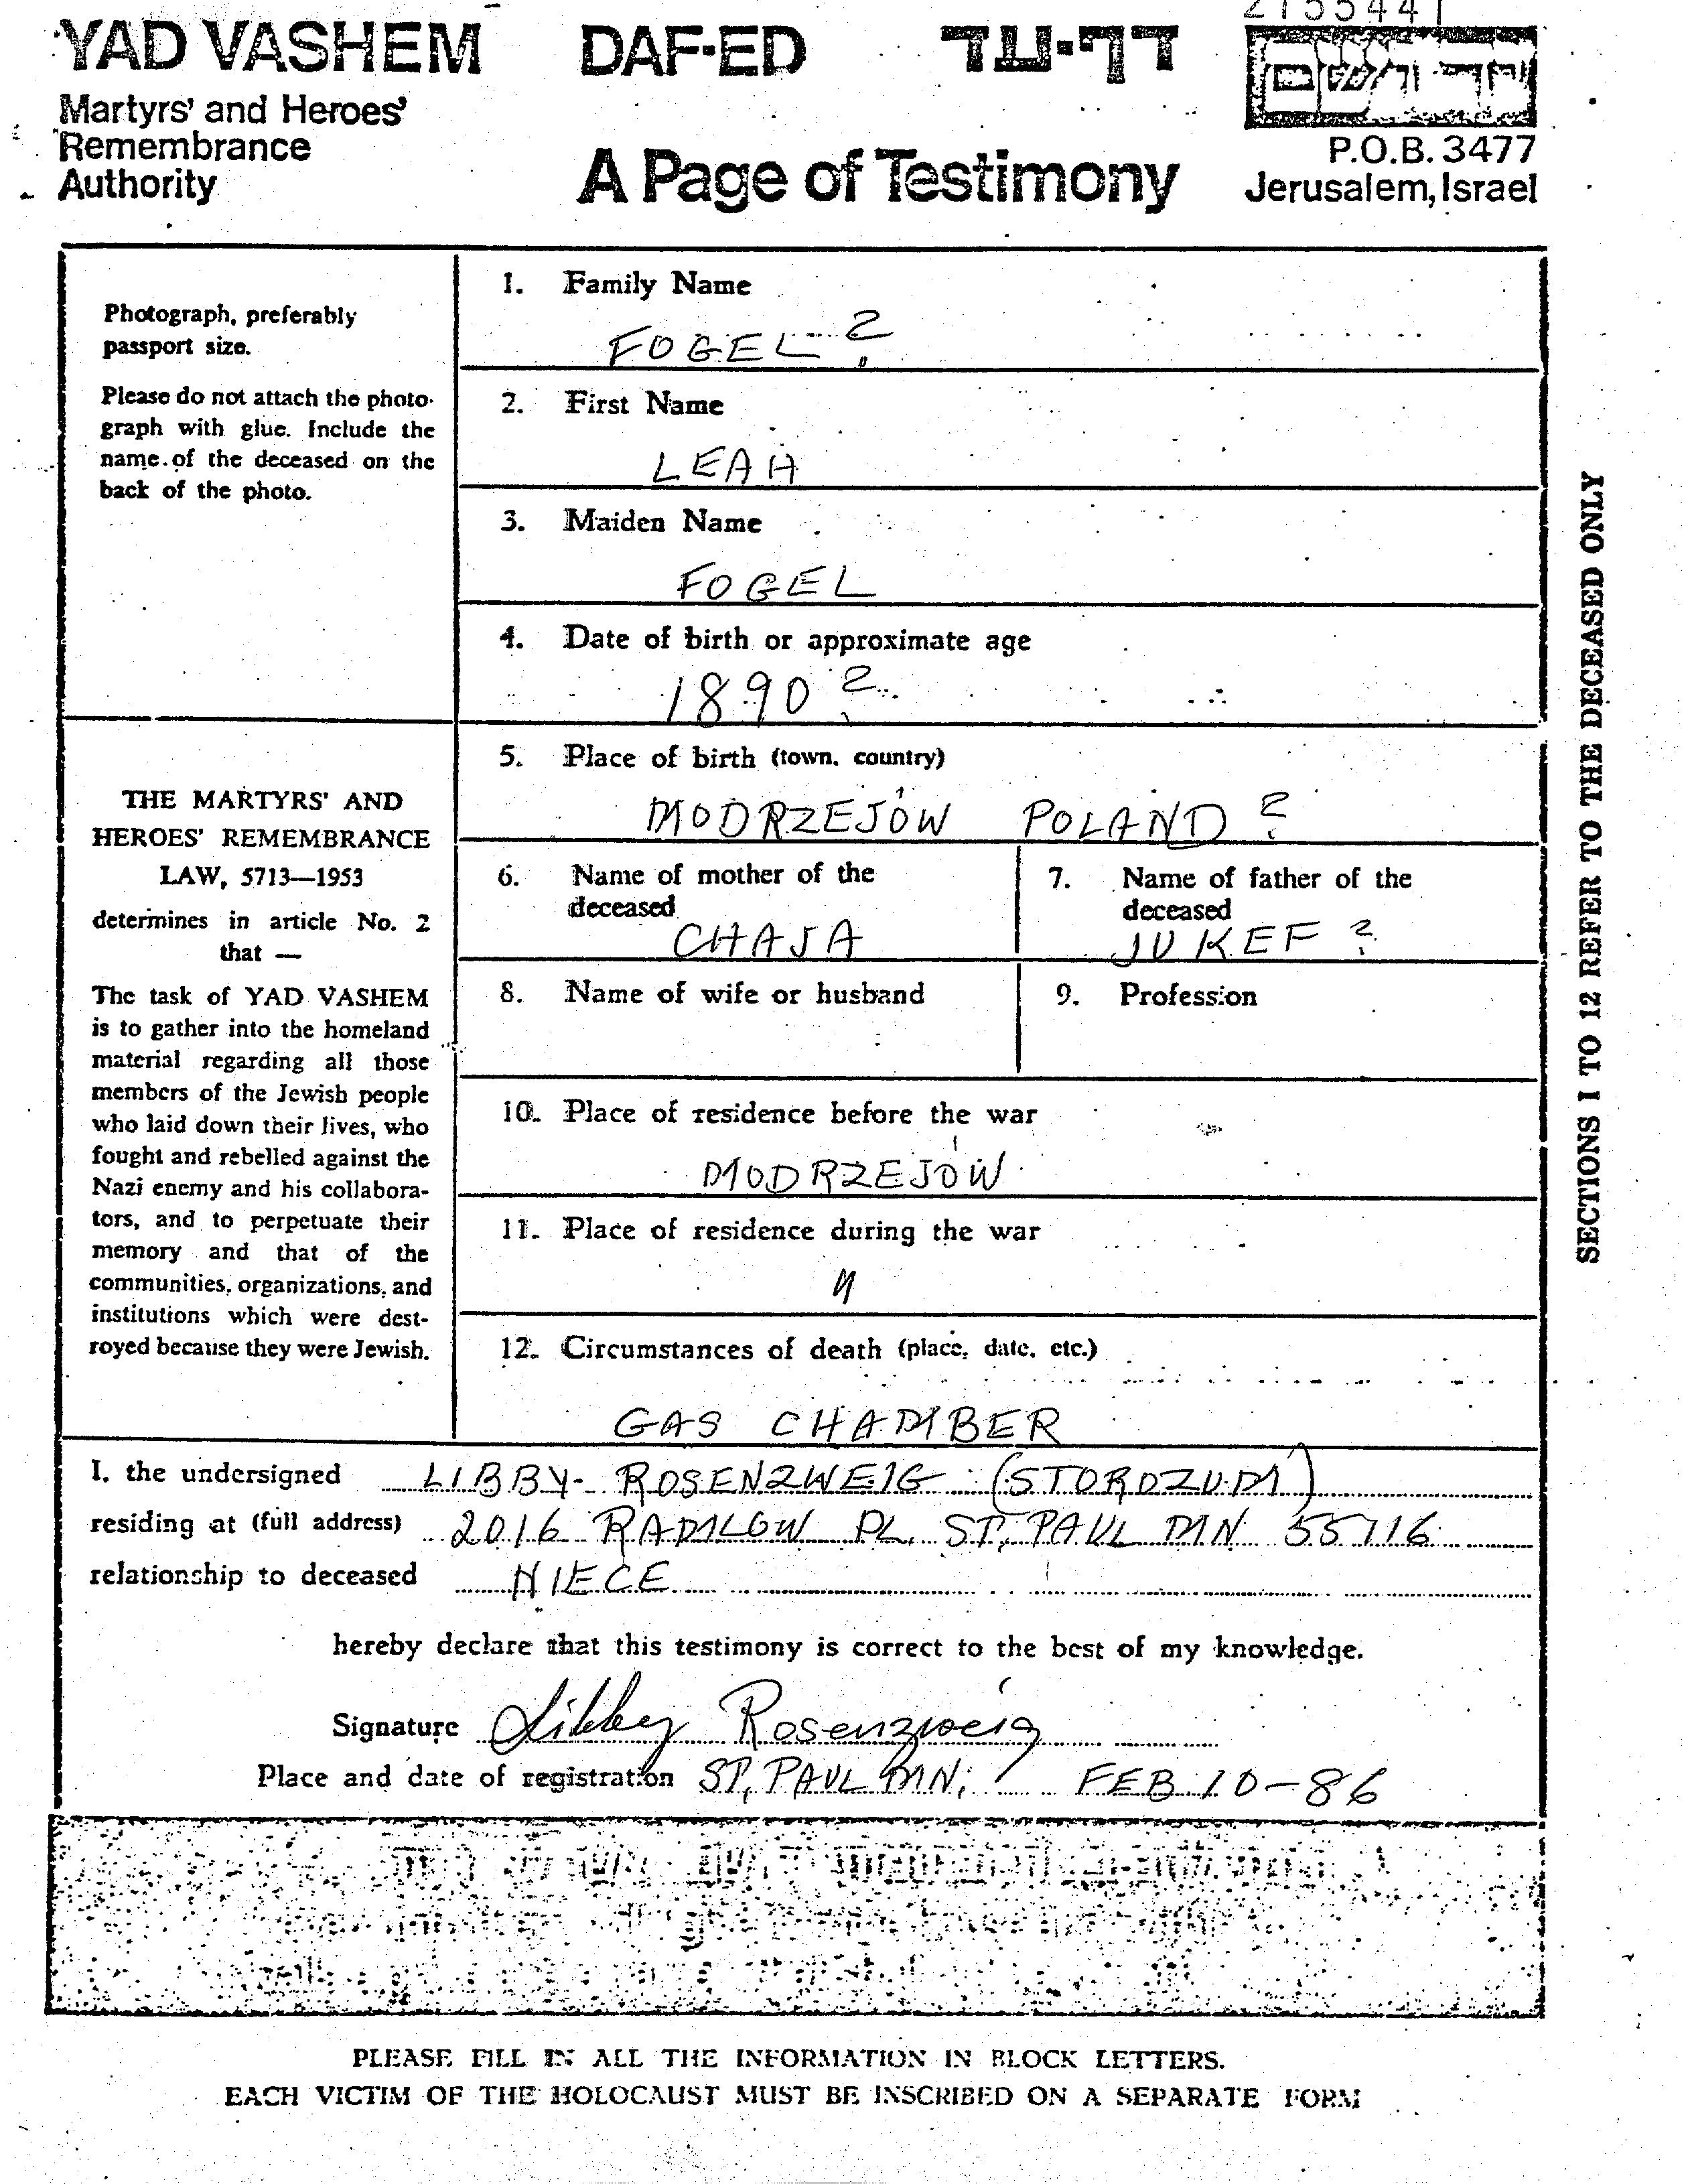 2155441
YAD VASHEM
DAF-ED
דף-עד
יד ושם
Martyrs' and Heroes'
Remembrance
Authority
A Page of Testimony
P.O.B. 3477
Jerusalem, Israel
Photograph, preferably
passport size.
Please do not attach the photo-
graph with glue. Include the
name of the deceased on the
back of the photo.
THE MARTYRS' AND
HEROES' REMEMBRANCE
LAW, 5713—1953
determines in article No. 2
that —
The task of YAD VASHEM
is to gather into the homeland
material regarding all those
members of the Jewish people
who laid down their lives, who
fought and rebelled against the
Nazi enemy and his collabora-
tors, and to perpetuate their
memory and that of the
communities, organizations, and
institutions which were dest-
royed because they were Jewish.
1. Family Name
FOGEL ?
2. First Name
LEAH
3. Maiden Name
FOGEL
4. Date of birth or approximate age
1890 ?
5. Place of birth (town, country)
MODRZEJÓW POLAND ?
6. Name of mother of the
deceased
CHAJA
7. Name of father of the
deceased
JUKEF ?
8. Name of wife or husband
9. Profession
10. Place of residence before the war
MODRZEJÓW
11. Place of residence during the war
"
12. Circumstances of death (place, date, etc.)
GAS CHAMBER
SECTIONS 1 TO 12 REFER TO THE DECEASED ONLY
I, the undersigned LIBBY ROSENZWEIG (STOROZUM)
residing at (full address) 2016 RADMLOW PL. ST. PAUL MN 55116
relationship to deceased NIECE
hereby declare that this testimony is correct to the best of my knowledge.
Signature Libby Rosenzweig
Place and date of registration ST. PAUL MN. FEB 10-86
PLEASE FILL IN ALL THE INFORMATION IN BLOCK LETTERS.
EACH VICTIM OF THE HOLOCAUST MUST BE INSCRIBED ON A SEPARATE FORM